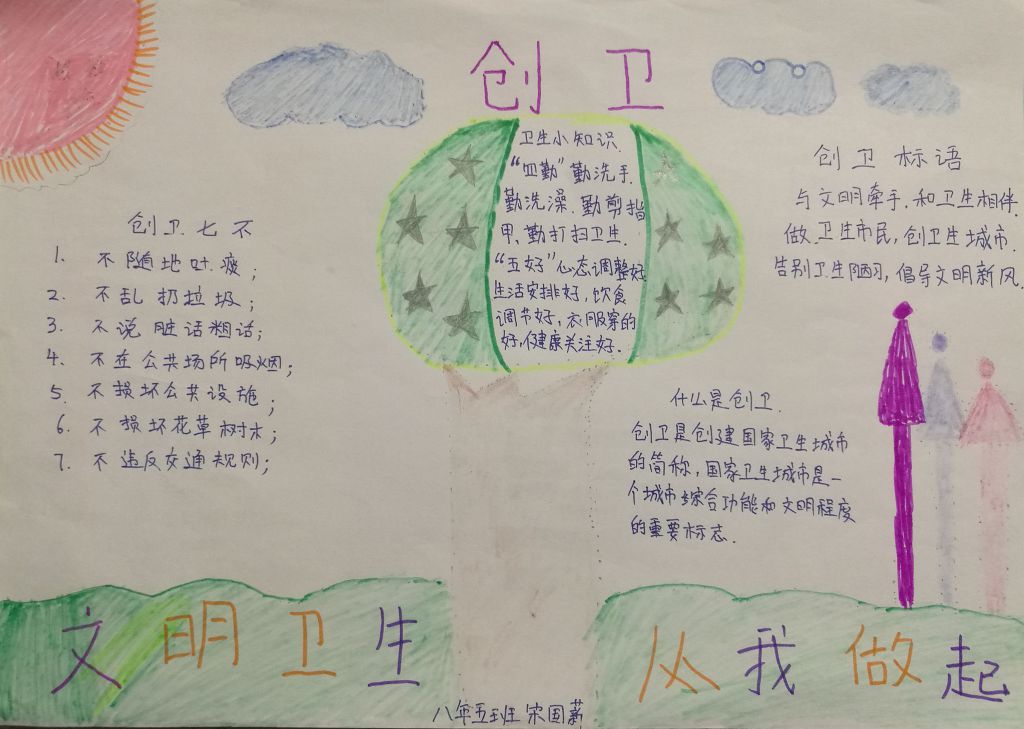 创 卫
卫生小知识.
“四勤”勤洗手.
勤洗澡.勤剪指
甲.勤打扫卫生.
“五好”心态调整好
生活安排好,饮食
调节好,衣服穿的
好,健康关注好.
创卫七不
1. 不随地吐痰;
2. 不乱扔垃圾;
3. 不说脏话粗话;
4. 不在公共场所吸烟;
5. 不损坏公共设施;
6. 不损坏花草树木;
7. 不违反交通规则;
创卫标语
与文明牵手.和卫生相伴.
做卫生市民,创卫生城市.
告别卫生陋习,倡导文明新风.
什么是创卫.
创卫是创建国家卫生城市
的简称,国家卫生城市是一
个城市综合功能和文明程度
的重要标志.
文明卫生
从我做起
八年五班 宋国